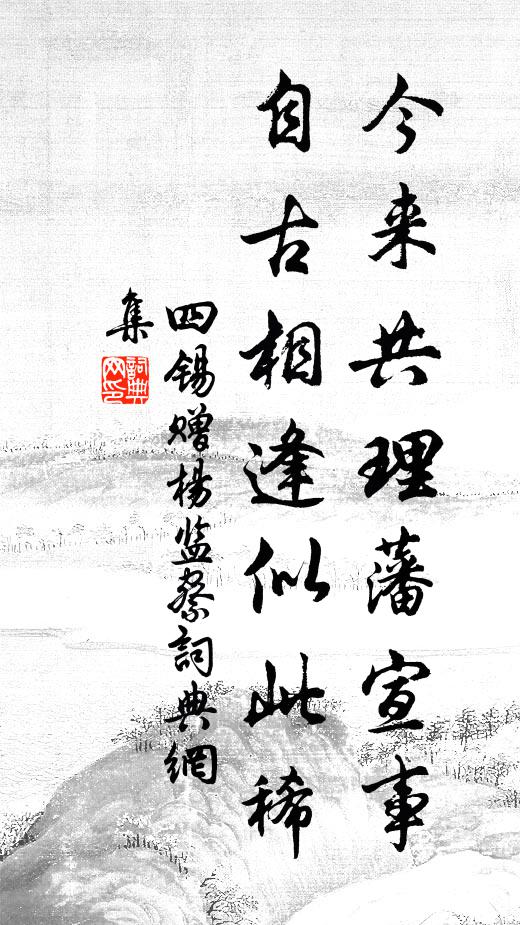 今来共理藩宣事
自古相逢似此稀
四锡赠杨监察詞典網
集
詞典网印